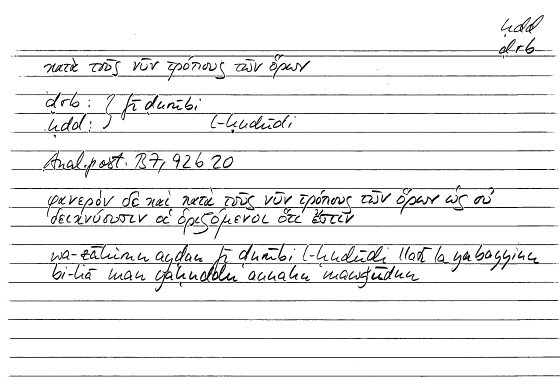 ḥdd
ḍrb
κατὰ τοὺς νῦν τρόπους τῶν ὅρων
ḍrb : } fī ḍurūbi
ḥdd : } l-ḥudūdi
Anal. post. B7, 92b20
φανερὸν δὲ καὶ κατὰ τοὺς νῦν τρόπους τῶν ὅρων ὡς οὐ
δεικνύουσιν οἱ ὁριζόμενοι ὅτι ἔστιν
wa-ẓāhirun ayḍan fī ḍurūbi l-ḥudūdi llatī la yubayyinu
bi-hā man yaḥuddu annahu mawǧūdun